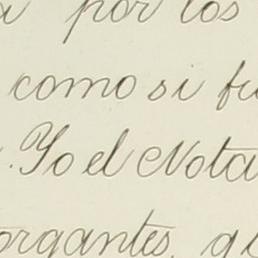 por los
como si fu
. Yo el Nota
organtes, qu